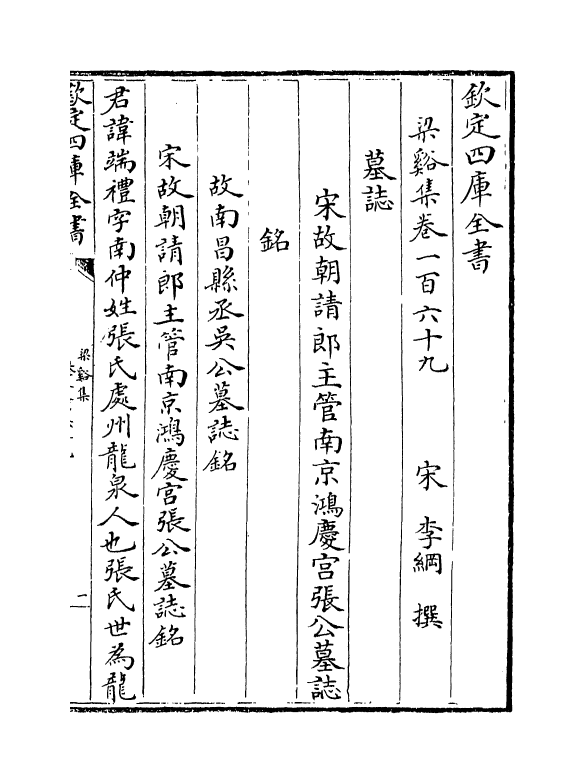 欽定四庫全書
梁谿集卷一百六十九
宋 李綱 撰
墓誌
宋故朝請郎主管南京鴻慶宮張公墓誌
銘
故南昌縣丞吳公墓誌銘
宋故朝請郎主管南京鴻慶宮張公墓誌銘
君諱端禮字南仲姓張氏處州龍泉人也張氏世為龍
欽定四庫全書
梁谿集